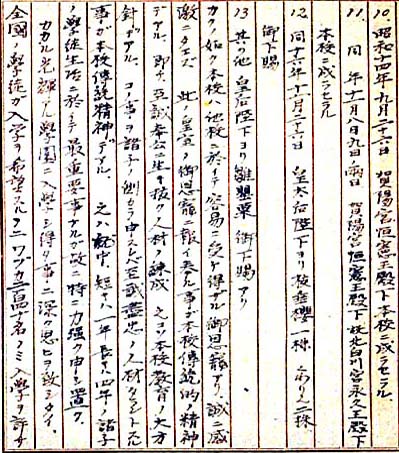 10. 昭和十四年九月二十六日 賀陽宮恒憲王殿下本校ニ成ラセラル
11. 同 年十一月八日九日両日 賀陽宮恒憲王殿下 北白川宮永久王殿下
本校ニ成ラセラル
12. 同十六年十一月二十六日 皇太后陛下ヨリ 一株
御下賜
13 其ノ他 皇后陛下ヨリ雛罌粟 御下賜アリ
カクノ如ク本校ハ他校ニ於イテ容易ニ受ケ得ザル御恩寵アリ、誠ニ感
激ニタエズ 此ノ皇室ノ御恩寵ニ報イ奉ル事ガ本校伝統的精神
デアル、即チ至誠奉公ニ生キ抜ク人材ノ錬成 之ヨリ本校教育ノ大方
針デアル、コノ事ヲ諸子ノ側カラ申スレバ至誠尽忠ノ人材タラントス
事ガ本校伝統精神デアル、之ハ就中、短キハ一年長キハ四年ノ諸子
ノ学徒生活ニ於イテ最重要事ナルガ故ニ特ニ力強ク申シ置ク、
カカル光輝アル学園ニ入学シ得タ事ニ深ク思ヒヲ致シタイ、
全国ノ学徒ガ入学ヲ希望スルニワヅカ 百 十名ノミ入学ヲ許サ